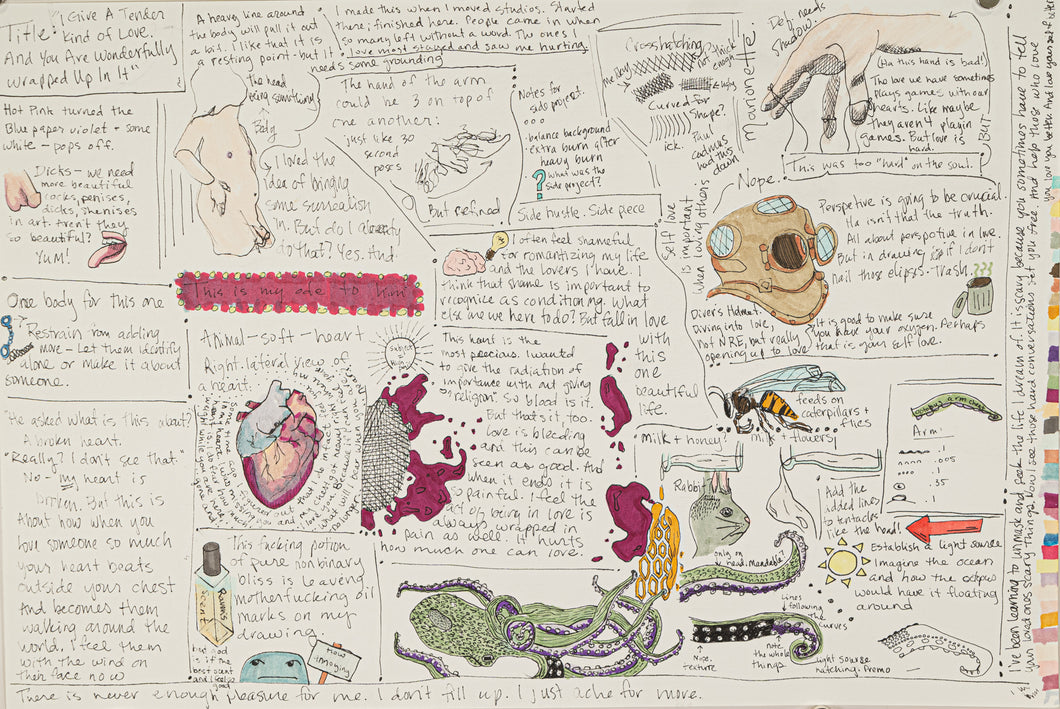 Title: "I Give A Tender
Kind of Love.
And You Are Wonderfully
Wrapped Up In It"
A heavy line around
the body will pull it out
a bit. I like that it is
a resting point - but it
needs some grounding
I made this when I moved studios. Started
there; finished here. People came in when
so many left without a word. The ones I
love most stayed and saw me hurting.
Hot Pink turned the
Blue paper violet - some
white - pops off.
Dicks - we need
more beautiful
cocks, penises,
dicks, shenises
in art. Aren't they
so beautiful?
YUM!
the head
being something
Body
I loved the
idea of bringing
some surrealism
in. But do I already
do that? Yes. And.
The hand of the arm
could be 3 on top of
one another:
just like 30
second
poses
But refined
Notes for
side project.
- balance background
- extra burn after
heavy burn
? What was the
side project?
Side hustle. Side piece
Crosshatching
thick
not
enough
Curved for
shape?
ick.
Paul
Cadmus
had this
down
Marionette
Def. needs
Shadow.
(Ha this hand is bad!)
The love we have sometimes
plays games with our
hearts. Like maybe
they aren't playin
games. But love is
hard.
BUT
This was too "hard" on the soul.
Nope.
Self love
is important
when loving others
Perspetive is going to be crucial.
Ha isn't that the truth.
All about perspotive in love.
But in drawing if I don't
nail those elipsis. Trash.
Divers Helmet.
Diving into love,
not NRE, but really
opening up to love
It is good to make sure
you have your oxygen. Perhaps
that is your self love.
I often feel shameful
for romantizing my life
and the lovers I have. I
think that shame is important to
recognize as conditioning. What
else are we here to do? But fall in love
with
this
one
beautiful
life.
This is my ode to him
One body for this one
Restrain from adding
more - Let them identify
alone or make it about
someone.
Animal - soft - hear
Right. lateral view of
a heart.
This heart is the
most precious. I wanted
to give the radiation of
importance with out giving
"religion" so blood is it.
But that's it, too.
Love is bleeding
and this can be
seen as good. And
when it ends it is
so painful. I feel the
act of being in love is
always wrapped in
pain as well. It hurts
how much one can love.
"He asked what is this about?
A broken heart.
"Really? I don't see that."
No - my heart is
Driven. But this is
about how when you
love someone so much
your heart beats
outside your chest
And becomes them
walking around the
world. I feel them
with the wind on
their face now
feeds on
caterpillars +
flies
Milk + honey?
Milk + flowers?
Rabbit
only on
head. Mendable?
octopus arm chest
Arm:
.005
.35
.1
Add the
added lines
to tentacles
like the head!
Establish a light source
Imagine the ocean
and how the octopus
would have it floating
around
This fucking potion
of pure nonbinary
bliss is leaveng
motherfucking oil
marks on my
drawing
Scent
but god
is it the
best scent
and I feel so
good
How
imposing
Nice.
texture
Lines
following
the
curves
note
the whole
things.
light source.
hatching. Promo
There is never enough pleasure for me. I don't fill up. I just ache for more.
I've been learning to unmask and seek the life I dream of. It is scary because you sometimes have to tell
your loved ones scary things. Now I see those hard conversations set you free And help those who love
you love you better. And love yourself better